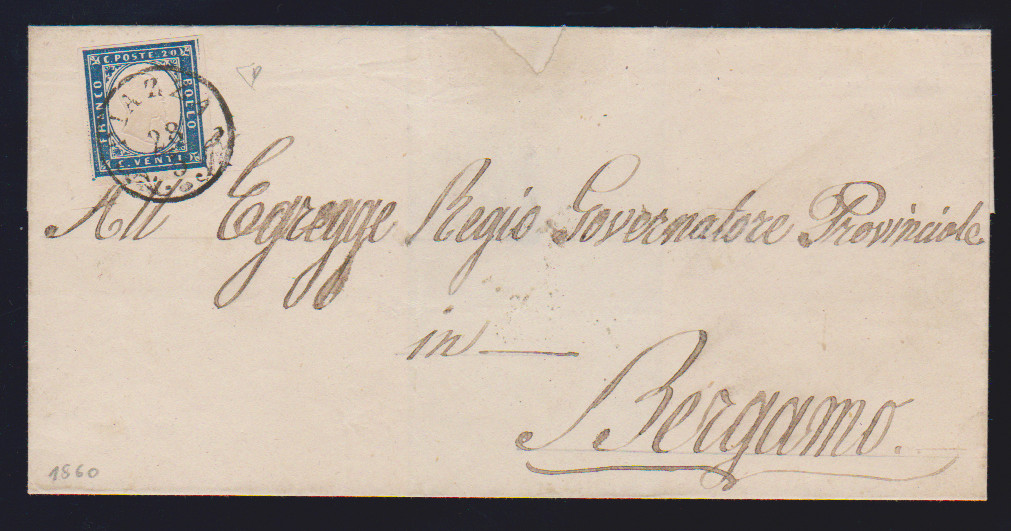 C. POSTE. 20
FRANCO
BOLLO
C. VENTI
28
All' Egregge Regio Governatore Provinciale
in
Bergamo.
1860